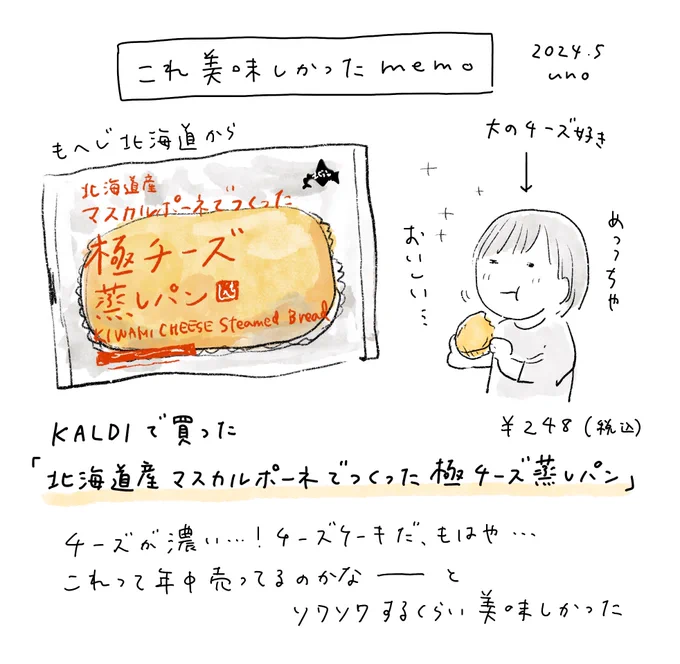 これ美味しかったmemo
2024.5
uno
もへじ北海道から
北海道産
マスカルポーネでつくった
極チーズ
蒸しパン
KIWAMI CHEESE Steamed Bread
大のチーズ好き
めっちゃ
おいしい…
KALDIで買った
¥248(税込)
「北海道産マスカルポーネでつくった極チーズ蒸しパン」
チーズが濃い…!チーズケーキだ、もはや…
これって年中売ってるのかな――と
ソワソワするくらい美味しかった